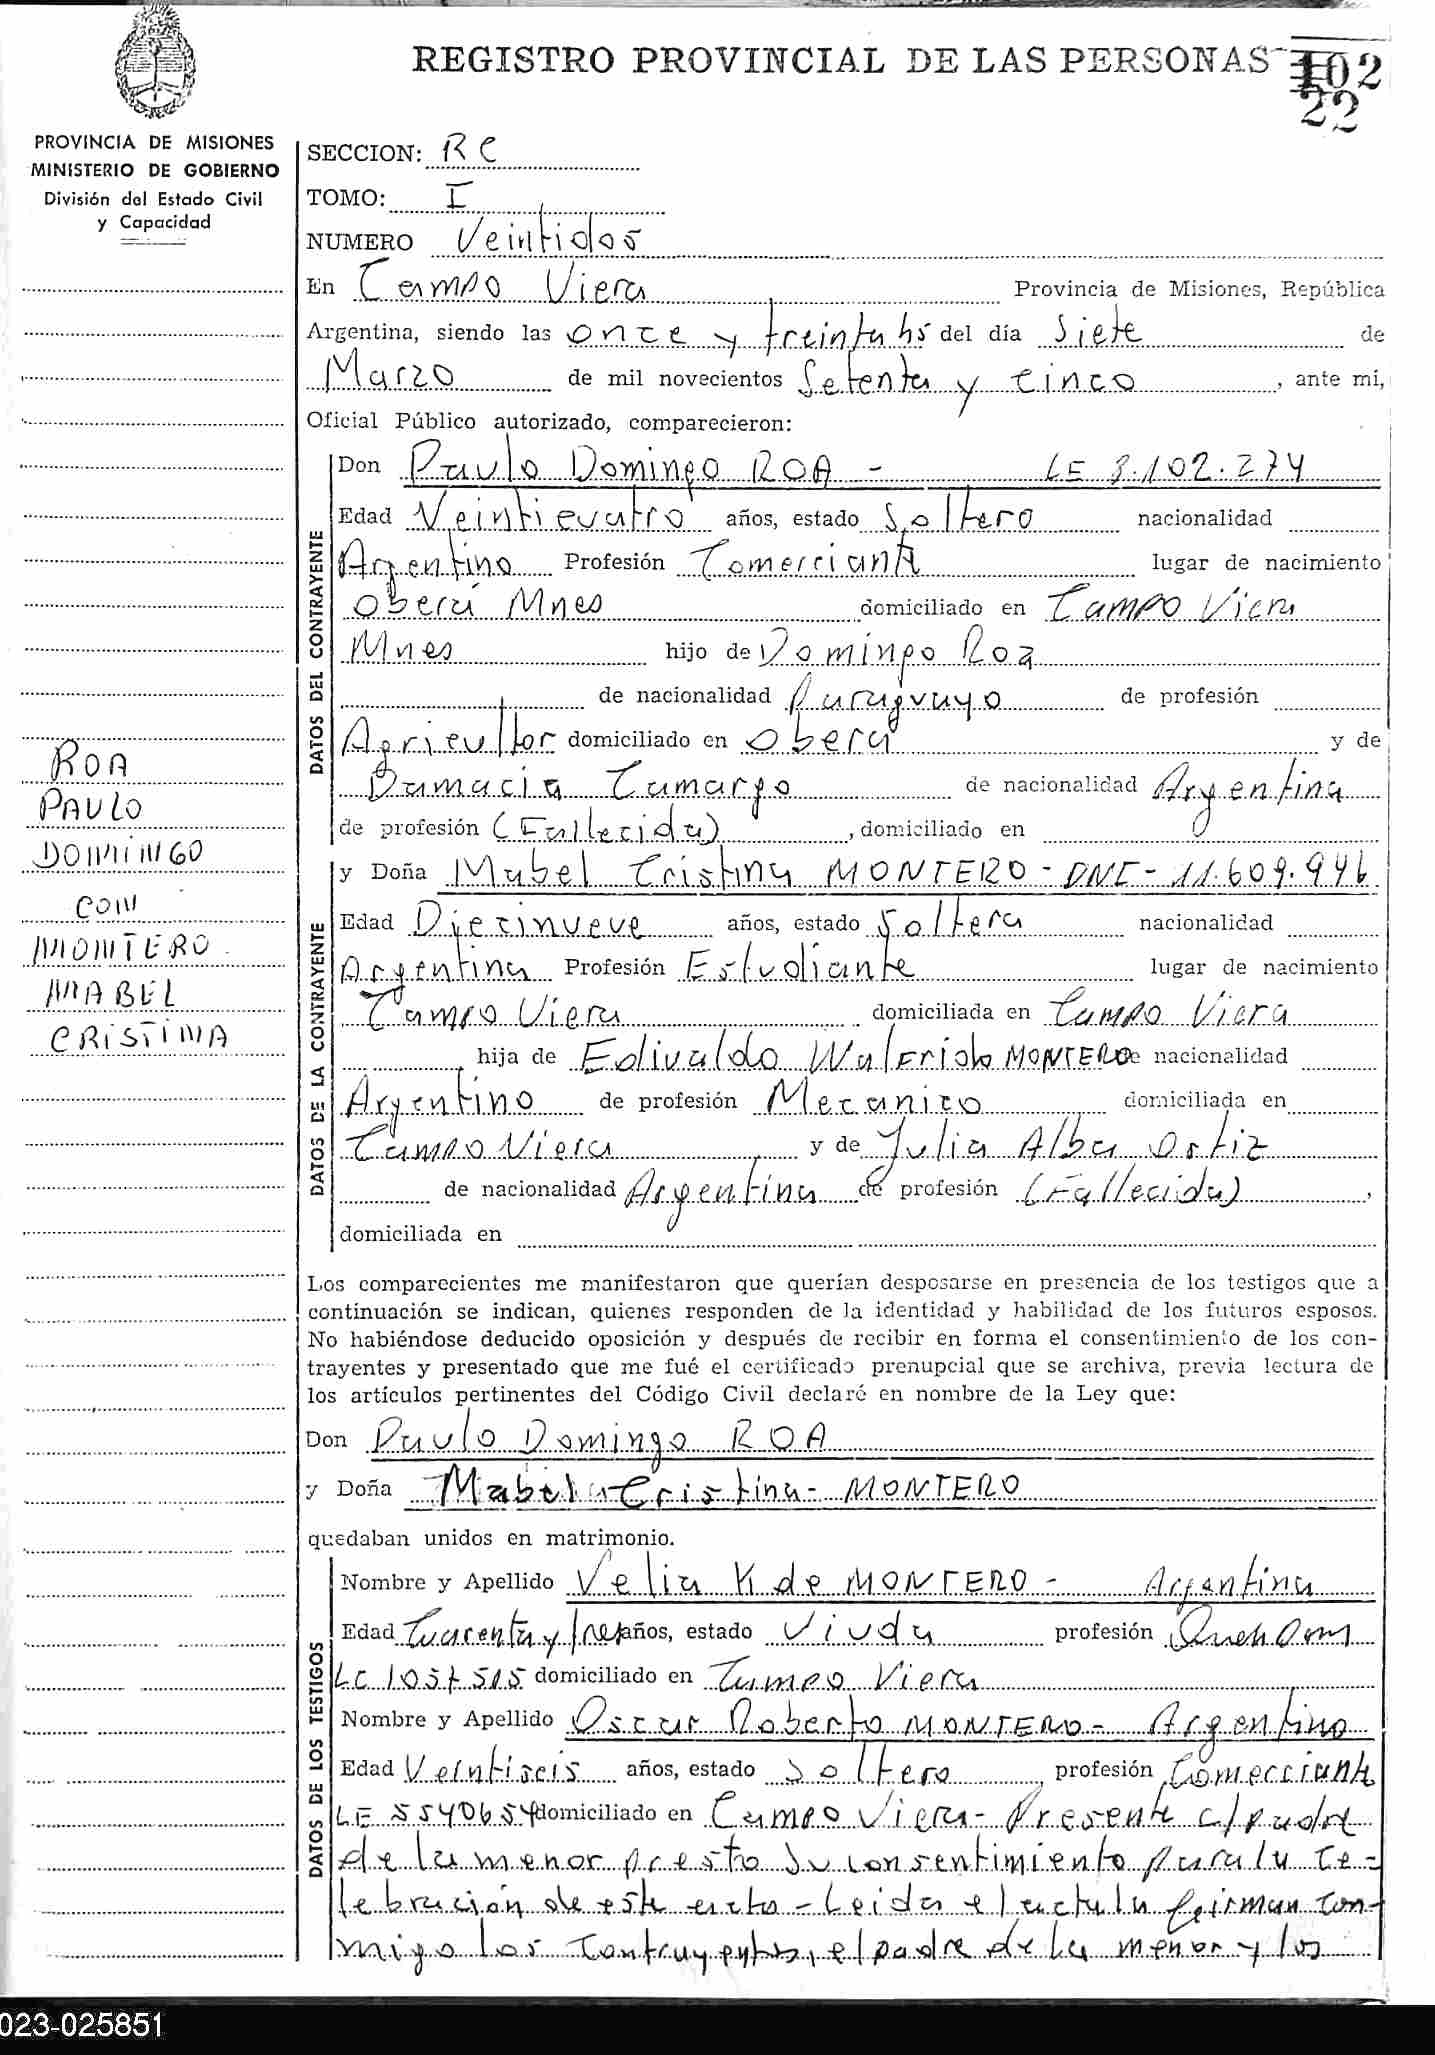 REGISTRO PROVINCIAL DE LAS PERSONAS
102
22
PROVINCIA DE MISIONES
MINISTERIO DE GOBIERNO
División del Estado Civil
y Capacidad
ROA
PAULO
DOMINGO
CON
MONTERO
MABEL
CRISTINA
SECCION: RC
TOMO: I
NUMERO Veintidos
En Campo Viera Provincia de Misiones, República
Argentina, siendo las once y treinta hs del día Siete de
Marzo de mil novecientos Setenta y cinco, ante mí,
Oficial Público autorizado, comparecieron:
DATOS DEL CONTRAYENTE
Don Paulo Domingo ROA - LE 8.102.274
Edad Veinticuatro años, estado Soltero nacionalidad
Argentino Profesión Comerciante lugar de nacimiento
Oberá Mnes domiciliado en Campo Viera
Mnes hijo de Domingo Roa
de nacionalidad Paraguayo de profesión
Agricultor domiciliado en Oberá y de
Damacia Camargo de nacionalidad Argentina
de profesión (Fallecida), domiciliado en
DATOS DE LA CONTRAYENTE
y Doña Mabel Cristina MONTERO - DNI - 11.609.946
Edad Diecinueve años, estado Soltera nacionalidad
Argentina Profesión Estudiante lugar de nacimiento
Campo Viera domiciliada en Campo Viera
, hija de Edivaldo Walfrido MONTERO de nacionalidad
Argentino de profesión Mecanico domiciliada en
Campo Viera y de Julia Alba Ortiz
de nacionalidad Argentina de profesión (Fallecida),
domiciliada en
Los comparecientes me manifestaron que querían desposarse en presencia de los testigos que a
continuación se indican, quienes responden de la identidad y habilidad de los futuros esposos.
No habiéndose deducido oposición y después de recibir en forma el consentimiento de los con-
trayentes y presentado que me fué el certificado prenupcial que se archiva, previa lectura de
los artículos pertinentes del Código Civil declaré en nombre de la Ley que:
Don Paulo Domingo ROA
y Doña Mabel Cristina - MONTERO
quedaban unidos en matrimonio.
DATOS DE LOS TESTIGOS
Nombre y Apellido Velia K de MONTERO - Argentina
Edad Cuarenta y tres años, estado Viuda profesión
LC domiciliado en Campo Viera
Nombre y Apellido Oscar Roberto MONTERO - Argentino
Edad Veintiseis años, estado Soltero, profesión Comerciante
LE 5540654 domiciliado en Campo Viera - Presente c/ padre
de la menor presto su consentimiento para la ce-
lebración de este acto - Leida el acta la firman con-
migo los contrayentes, el padre de la menor y los
023-025851